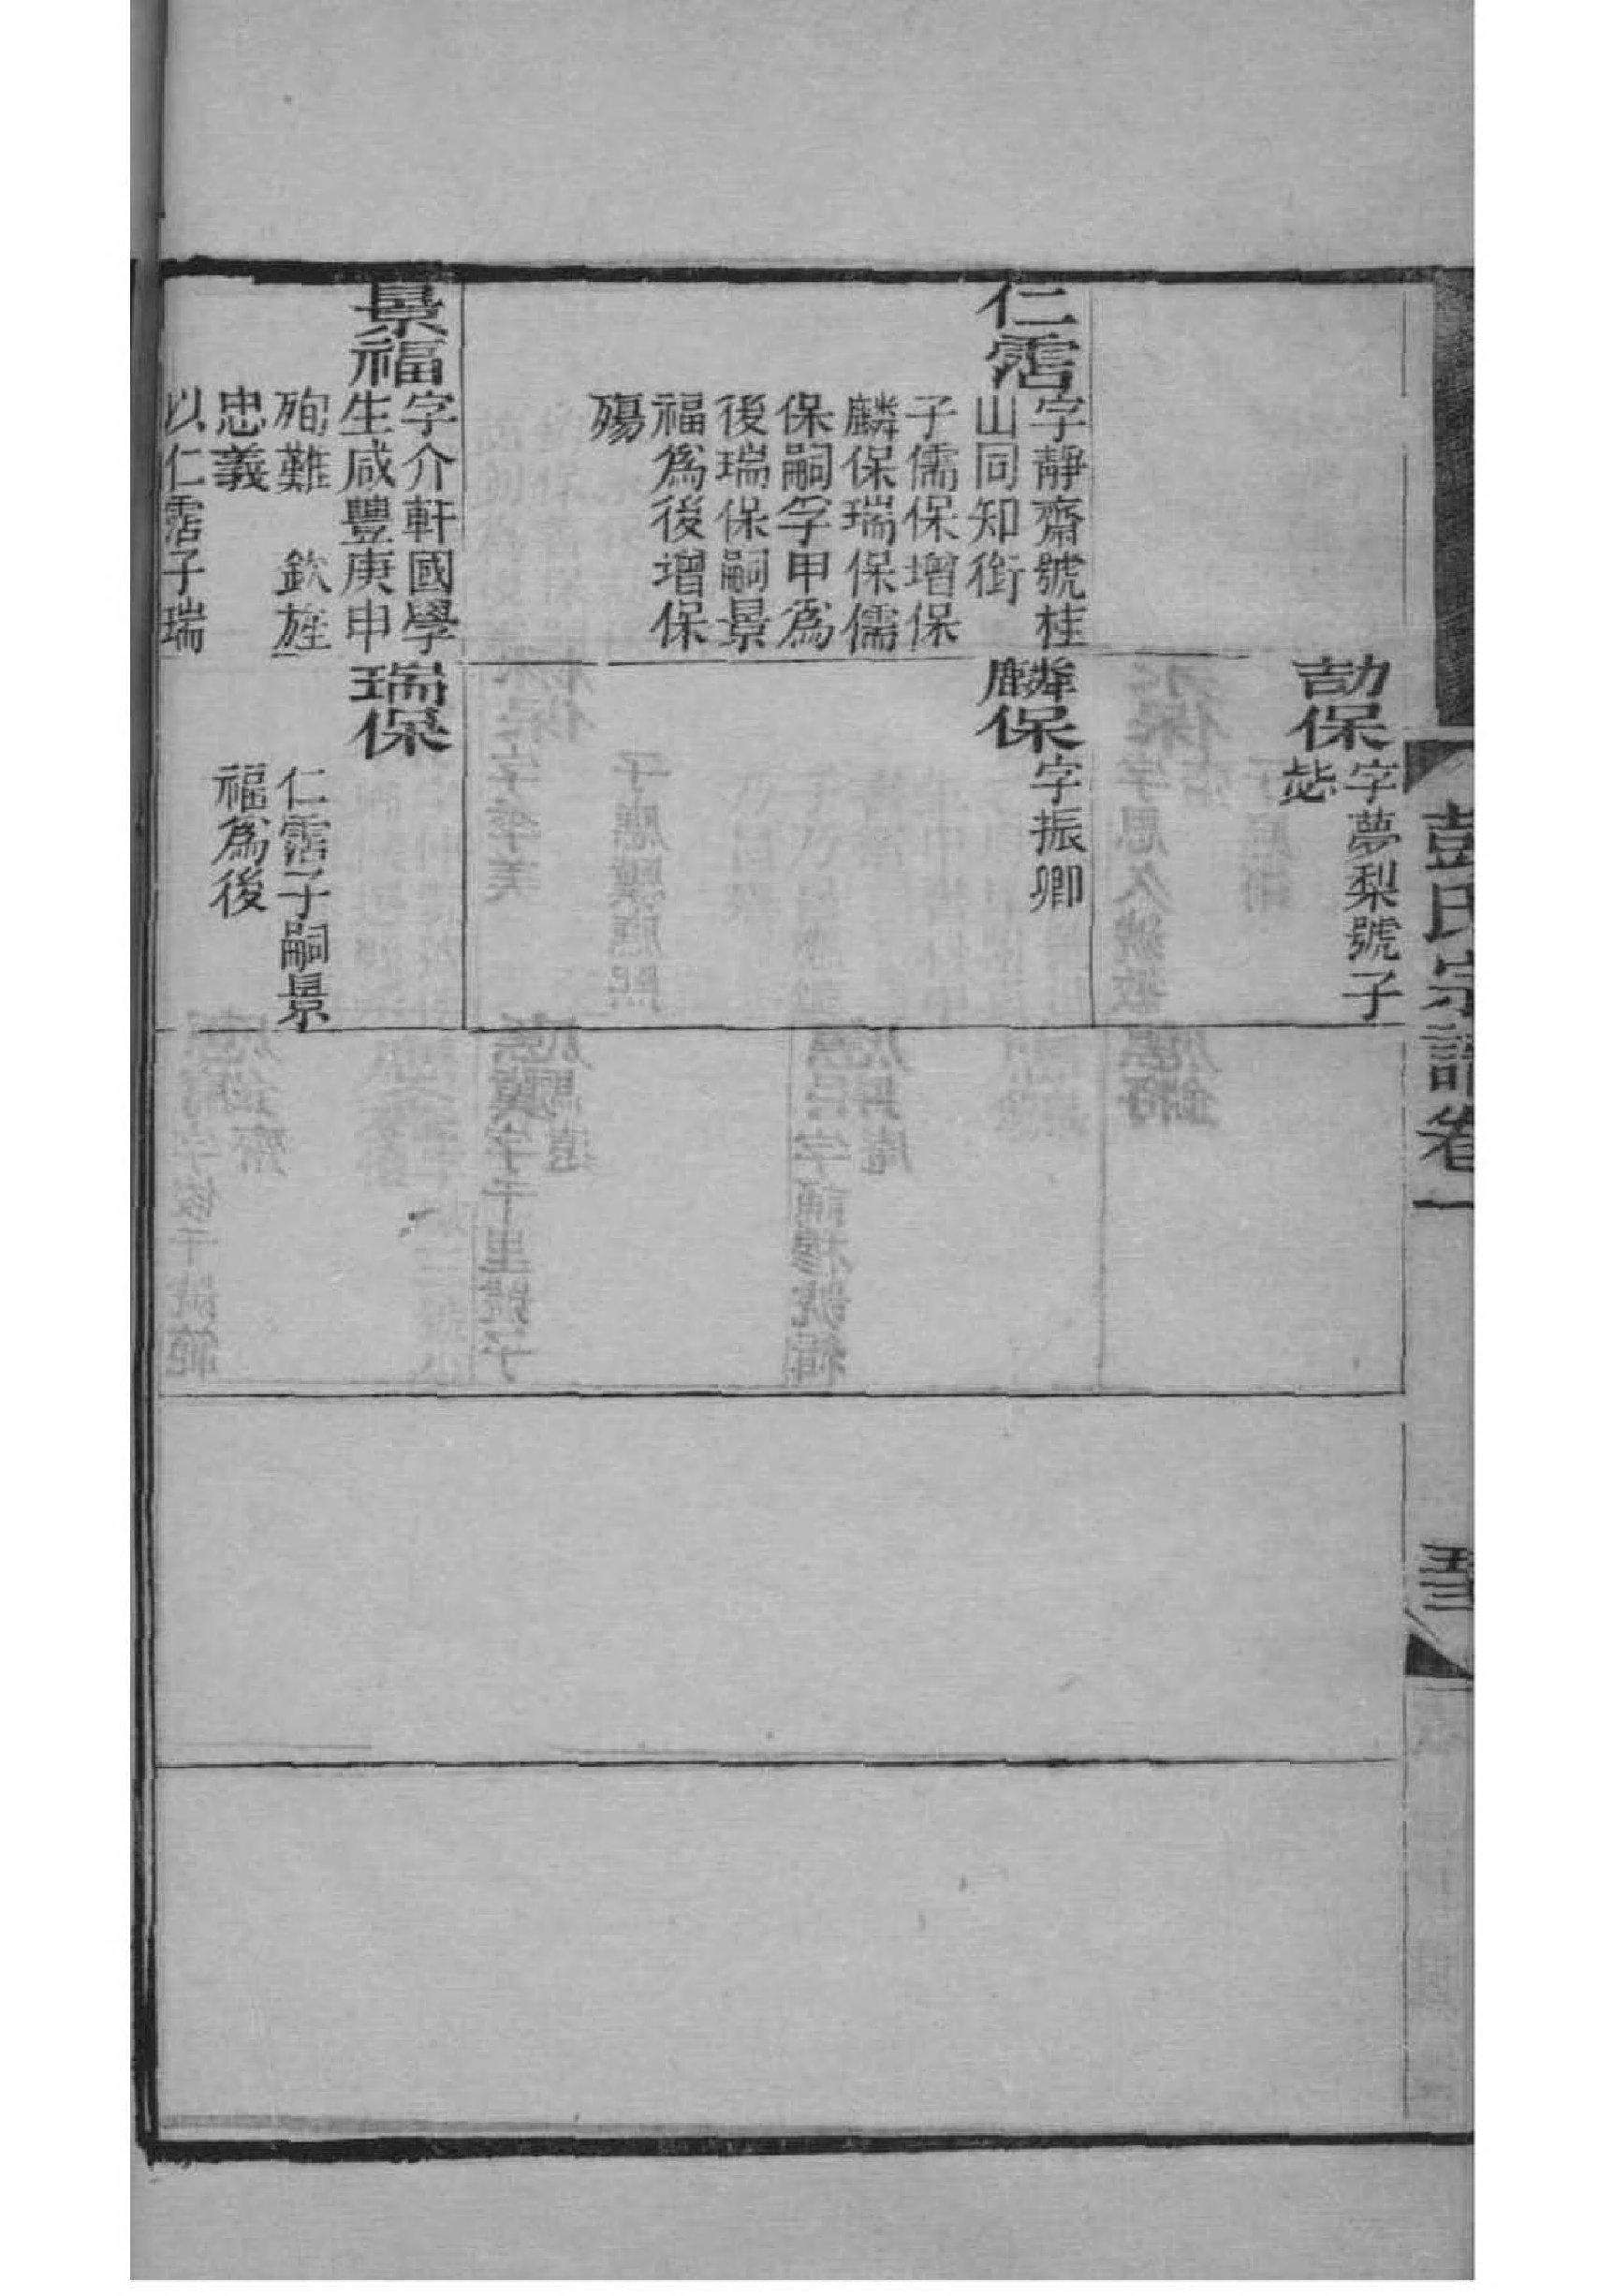 彭氏宗譜卷一
劼保
字夢梨號子
仁霑
字靜齋號桂
山同知銜
子儒保增保
麟保瑞保儒
保嗣孚甲爲
後瑞保嗣景
福爲後增保
殤
麟保
字振卿
景福
字介軒國學
生咸豐庚申
殉難 欽旌
忠義
以仁霑子瑞
瑞保
仁霑子嗣景
福爲後